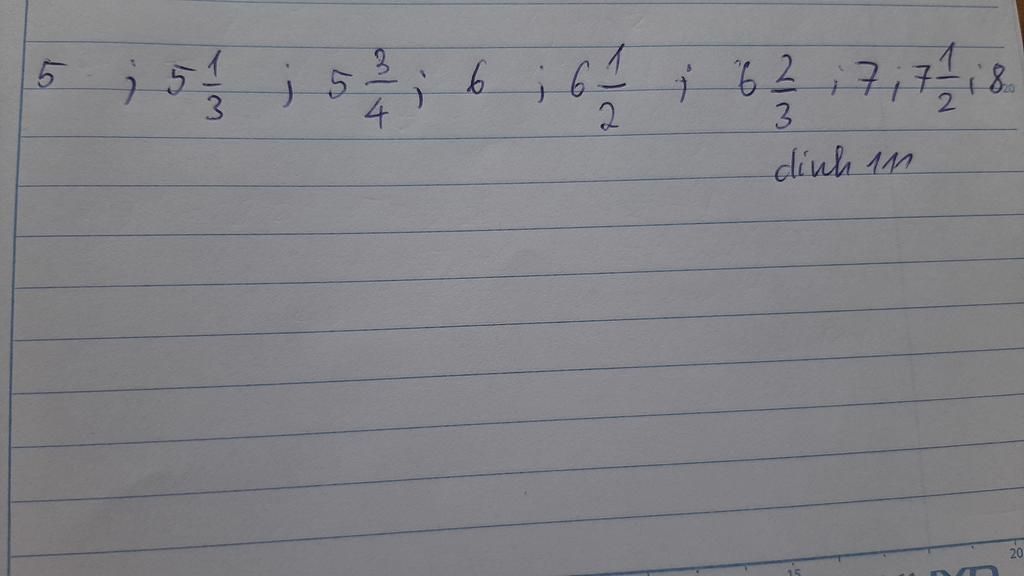 5 ; 5 1/3 ; 5 3/4 ; 6 ; 6 1/2 ; 6 2/3 ; 7 ; 7 1/2 ; 8
dinh 111
15
20